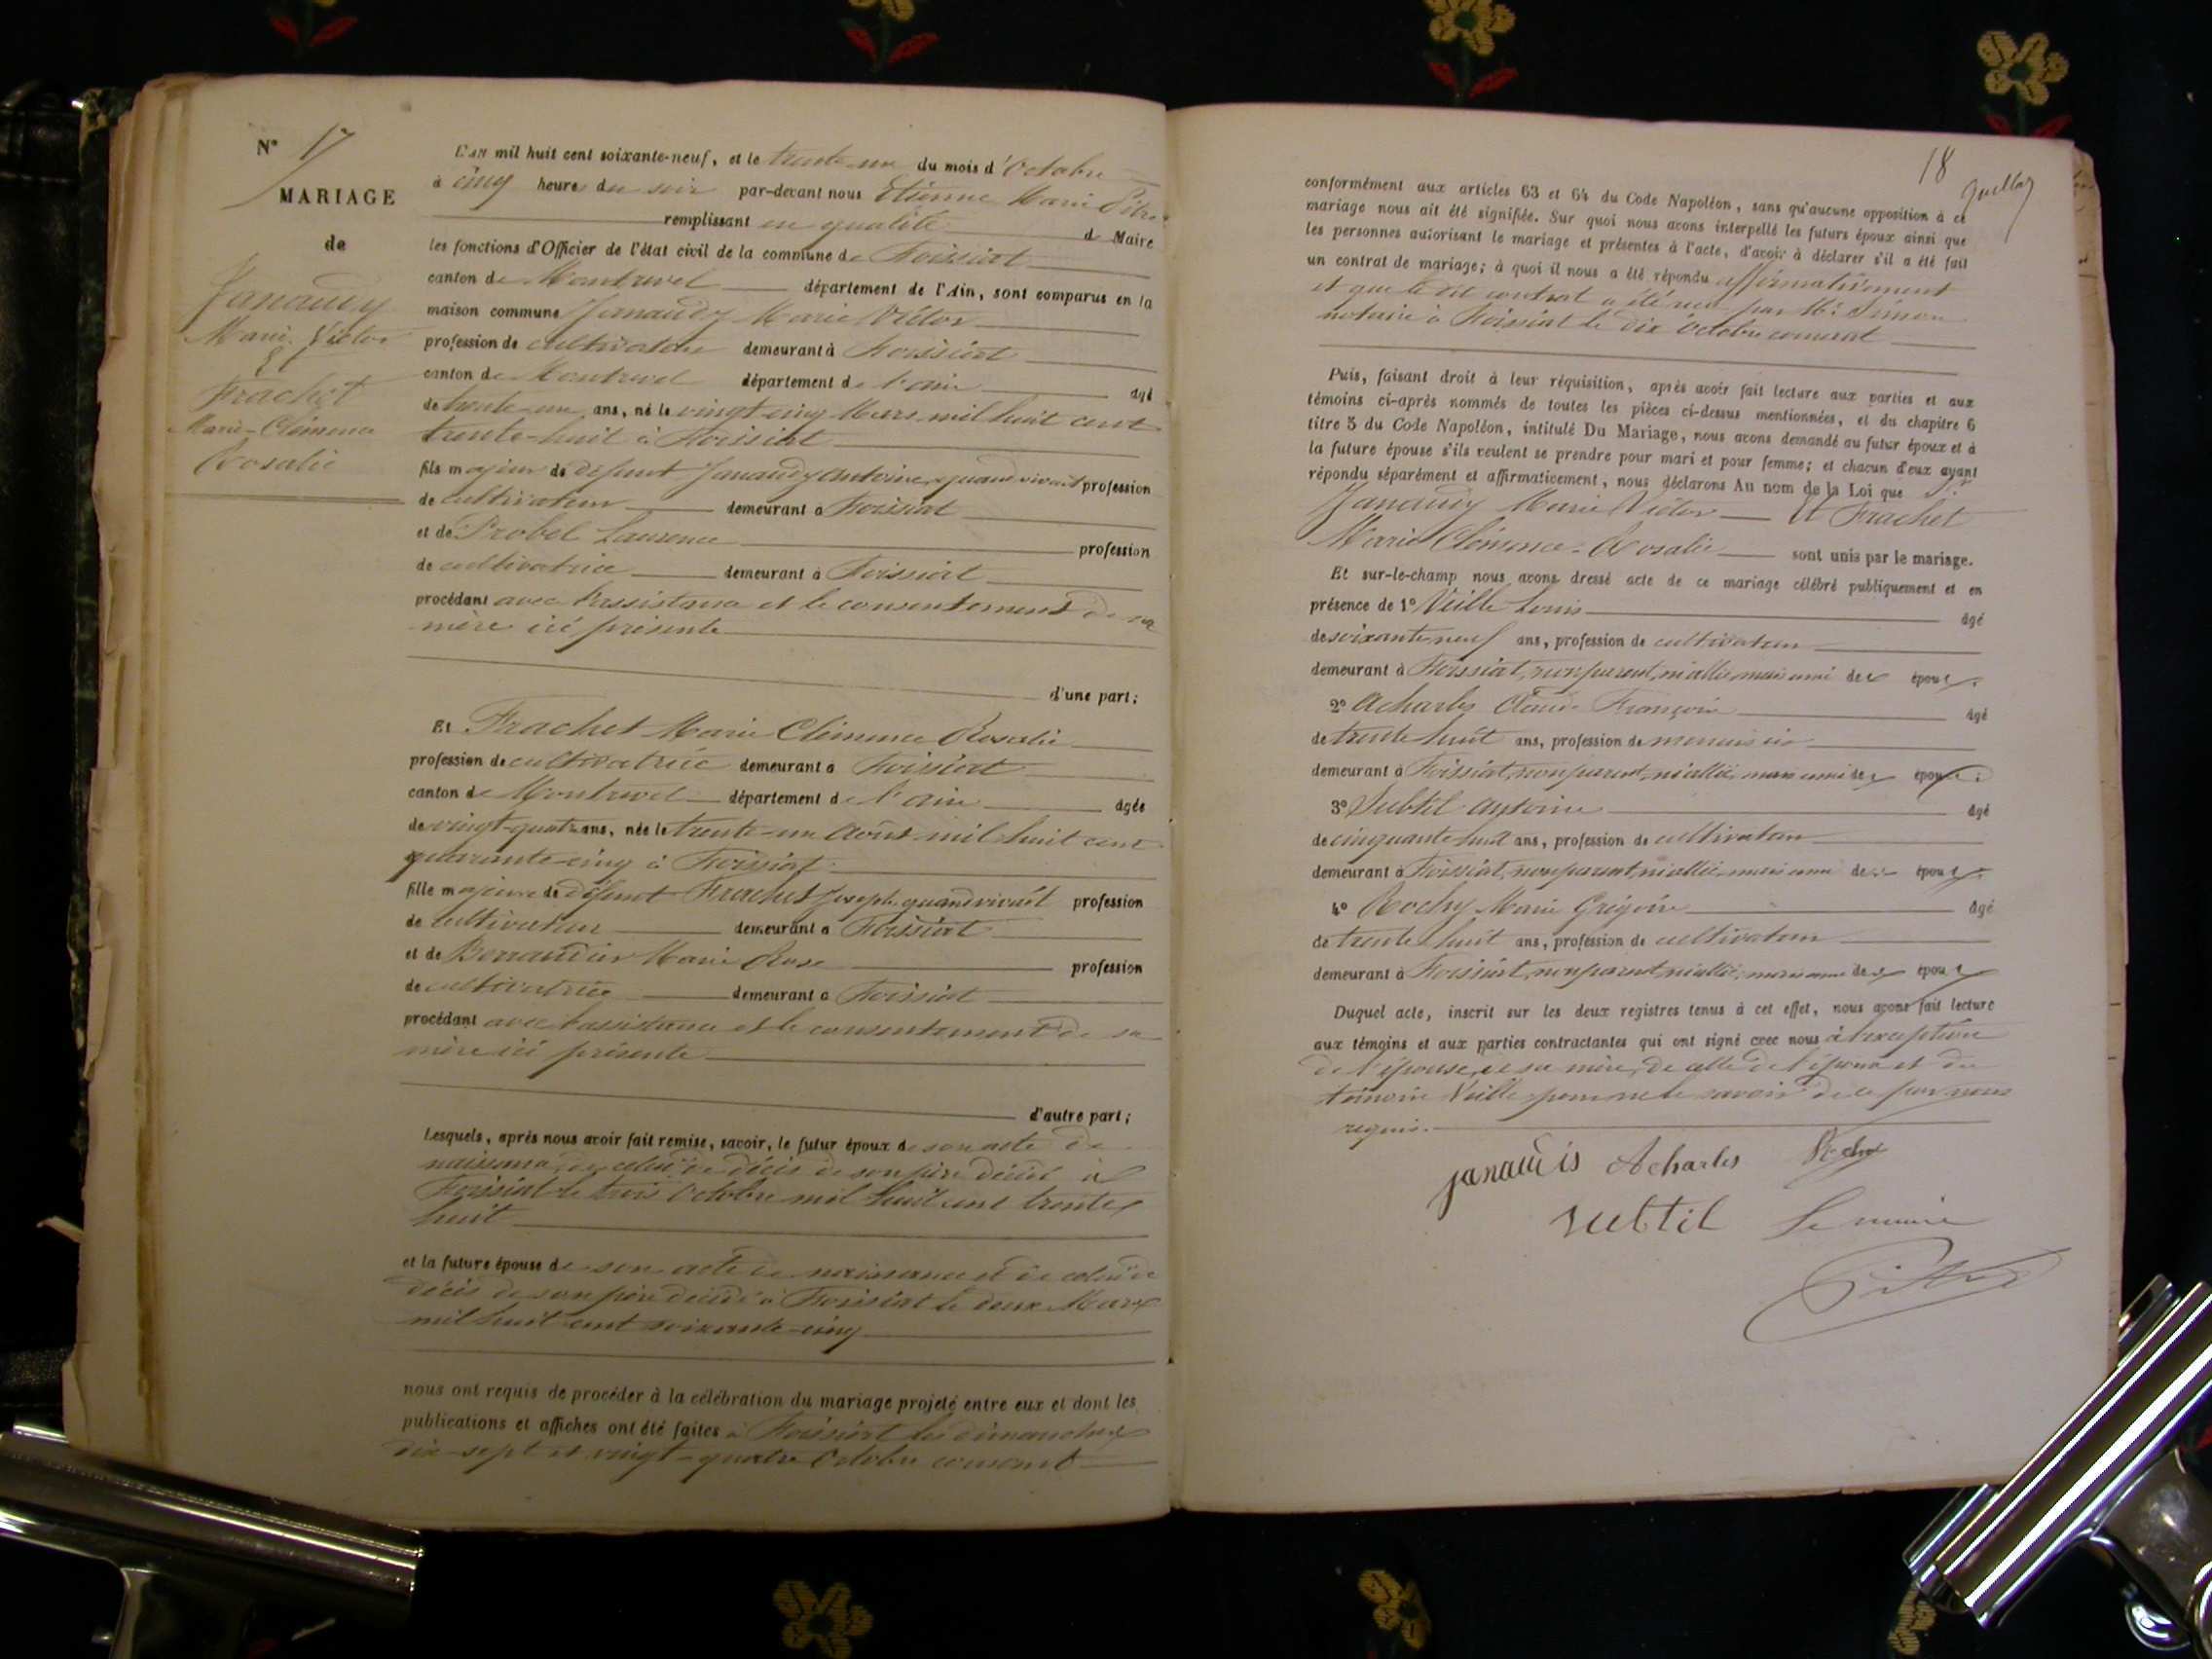 N° 17
MARIAGE
de
Janaudy
Marie Victor
Et
Frachet
Marie-Clémence
Rosalie
L'an mil huit cent soixante-neuf, et le trente-un du mois d'Octobre
à cinq heures du soir par-devant nous Etienne Marie Pitre
remplissant en qualité de Maire
les fonctions d'Officier de l'état civil de la commune de Foissiat
canton de Montrevel département de l'Ain, sont comparus en la
maison commune Janaudy Marie Victor
profession de cultivateur demeurant à Foissiat
canton de Montrevel département de l'ain agé
de trente-un ans, né le vingt cinq Mars mil huit cent
trente-huit à Foissiat
fils majeur de défunt Janaudy antoine, quand vivait profession
de cultivateur demeurant à Foissiat
et de Probel Laurence profession
de cultivatrice demeurant à Foissiat
procédant avec l'assistance et le consentement de sa
mère ici présente
d'une part;
Et Frachet Marie Clémence Rosalie
profession de cultivatrice demeurant à Foissiat
canton de Montrevel département de l'ain agée
de vingt-quatre ans, née le trente-un Août mil huit cent
quarante-cinq à Foissiat
fille majeure de défunt Frachet Joseph quand vivait profession
de cultivateur demeurant à Foissiat
et de Marie Rose profession
de cultivatrice demeurant à Foissiat
procédant avec l'assistance et le consentement de sa
mère ici présente
d'autre part;
Lesquels, après nous avoir fait remise, savoir, le futur époux de son acte de
naissance, de celui de décès de son père décédé à
Foissiat le trois Octobre mil huit cent trente
huit
et la future épouse de son acte de naissance et de celui de
décès de son père décédé à Foissiat le deux Mars
mil huit cent soixante-cinq
nous ont requis de procéder à la célébration du mariage projeté entre eux et dont les
publications et affiches ont été faites à Foissiat les dimanches
dix-sept et vingt-quatre Octobre courant
18
conformément aux articles 63 et 64 du Code Napoléon, sans qu'aucune opposition à ce
mariage nous ait été signifiée. Sur quoi nous avons interpellé les futurs époux ainsi que
les personnes autorisant le mariage et présentes à l'acte, d'avoir à déclarer s'il a été fait
un contrat de mariage; à quoi il nous a été répondu affirmativement
et que le dit contrat a été reçu par Me Simon
notaire à Foissiat le dix Octobre courant
Puis, faisant droit à leur réquisition, après avoir fait lecture aux parties et aux
témoins ci-après nommés de toutes les pièces ci-dessus mentionnées, et du chapitre 6
titre 5 du Code Napoléon, intitulé Du Mariage, nous avons demandé au futur époux et à
la future épouse s'ils veulent se prendre pour mari et pour femme; et chacun d'eux ayant
répondu séparément et affirmativement, nous déclarons Au nom de la Loi que
Janaudy Marie Victor Et Frachet
Marie Clémence-Rosalie sont unis par le mariage.
Et sur-le-champ nous avons dressé acte de ce mariage célébré publiquement et en
présence de 1° Veille Louis âgé
de soixante-neuf ans, profession de cultivateur
demeurant à Foissiat, non parent, ni allié, mais ami des époux.
2° Acharles Claude François âgé
de trente huit ans, profession de menuisier
demeurant à Foissiat, non parent, ni allié, mais ami des époux;
3° Subtil Antoine âgé
de cinquante huit ans, profession de cultivateur
demeurant à Foissiat, non parent, ni allié, mais ami des époux.
4° Rochy Marie Grégoire âgé
de trente huit ans, profession de cultivateur
demeurant à Foissiat, non parent, ni allié, mais ami des époux
Duquel acte, inscrit sur les deux registres tenus à cet effet, nous avons fait lecture
aux témoins et aux parties contractantes qui ont signé avec nous à l'exception
de l'épouse, de sa mère, de celle de l'époux et du
témoin Veille pour ne le savoir de ce par nous
requis.
janaudis Acharles Rochy
subtil Le maire
Pitre